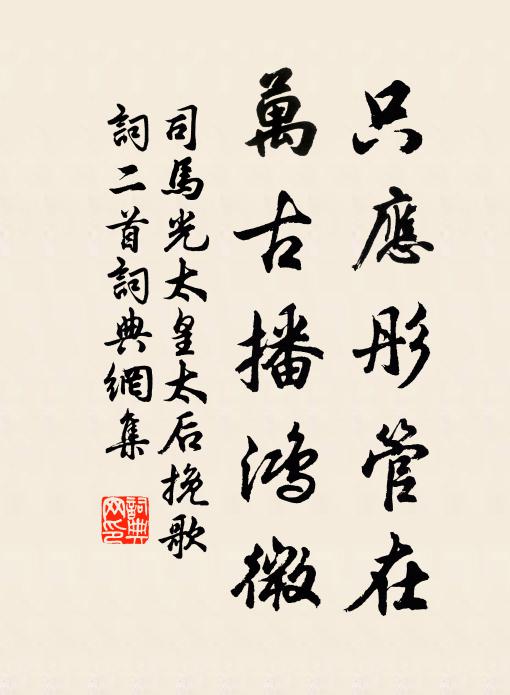 只應彤管在
萬古播鴻徽
司馬光太皇太后挽歌
詞二首詞典網集
詞典
网印